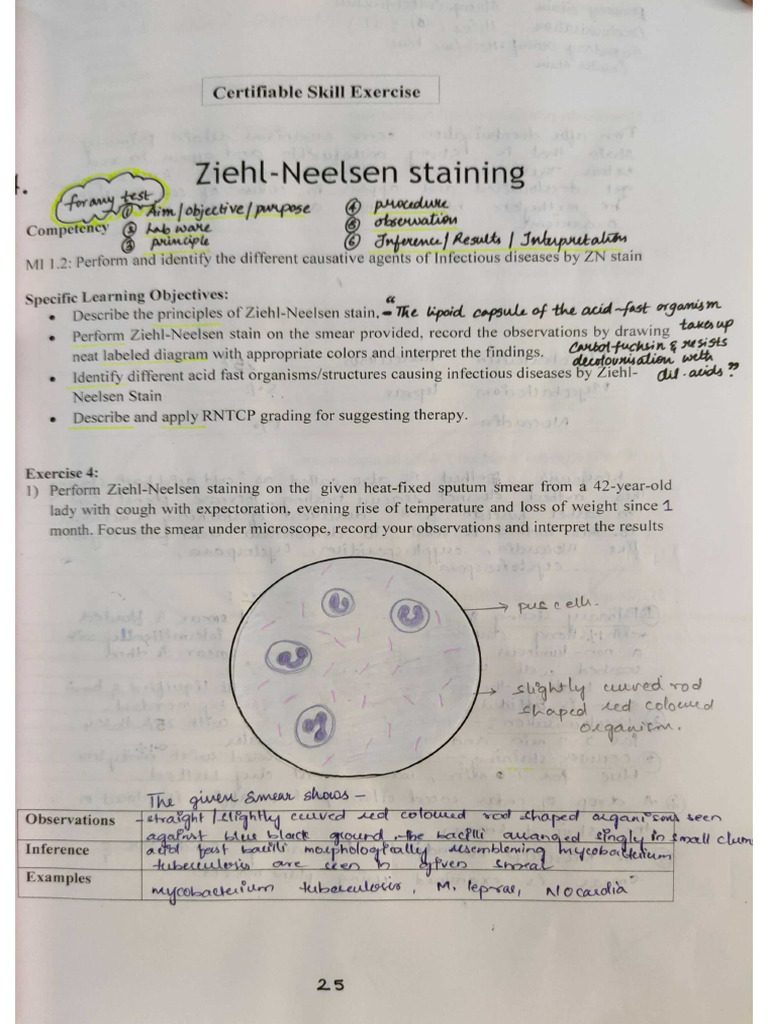 Certifiable Skill Exercise
4.
Ziehl-Neelsen staining
for any test
① Aim/objective/purpose
② Lab ware
③ principle
④ procedure
⑤ observation
⑥ Inference/Results/Interpretation
Competency
MI 1.2: Perform and identify the different causative agents of Infectious diseases by ZN stain
Specific Learning Objectives:
• Describe the principles of Ziehl-Neelsen stain. - "The lipoid capsule of the acid-fast organism
takes up
Carbol-fuchsin & resists
decolourisation with
dil. acids"
• Perform Ziehl-Neelsen stain on the smear provided, record the observations by drawing
neat labeled diagram with appropriate colors and interpret the findings.
• Identify different acid fast organisms/structures causing infectious diseases by Ziehl-
Neelsen Stain
• Describe and apply RNTCP grading for suggesting therapy.
Exercise 4:
1) Perform Ziehl-Neelsen staining on the given heat-fixed sputum smear from a 42-year-old
lady with cough with expectoration, evening rise of temperature and loss of weight since 1
month. Focus the smear under microscope, record your observations and interpret the results
pus cells.
slightly curved rod
shaped red coloured
organism.
The given smear shows -
Observations
straight/slightly curved red coloured rod shaped organisms seen
against blue black ground, the bacilli arranged singly in small clum
Inference
acid fast bacilli morphologically resemblening mycobacterium
tuberculosis are seen in given smear
Examples
mycobacterium tuberculosis, M. lepras, Nocardia
25